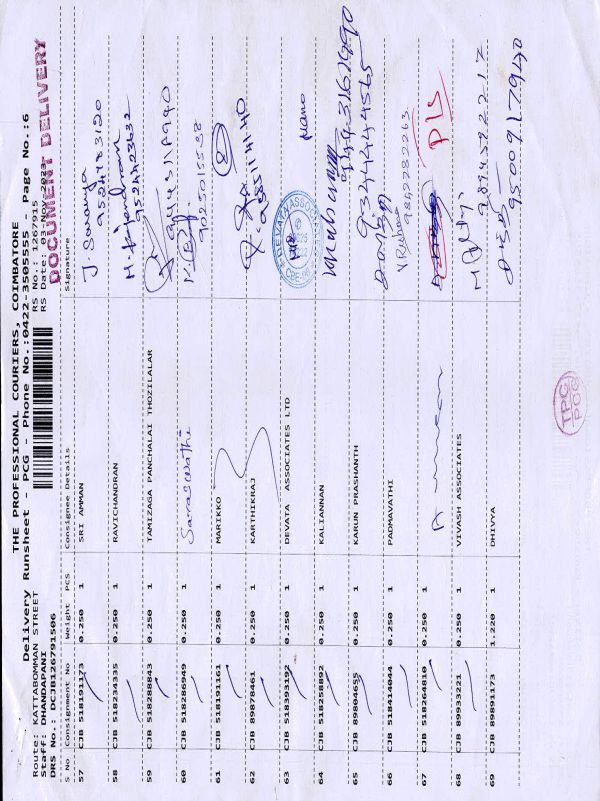 THE PROFESSIONAL COURIERS, COIMBATORE
Delivery Runsheet PCG - Phone No.:0422-3505555 - Page No.:6
Route: KATTABOMMAN STREET RS No.: 1267915
Staff: DHANDAPANI RS Date: 03 Nov 2023
DRS No.: DCJB126791506 DOCUMENT DELIVERY
S No Consignment No Weight PCS Consignee Details Signature
57 CJB 518191173 0.250 1 SRI AMMAN J. Saranya 9524483120
58 CJB 518234335 0.250 1 RAVICHANDRAN 9524423632
59 CJB 518288843 0.250 1 TAMIZAGA PANCHALAI THOZILALAR
60 CJB 518286949 0.250 1 Saraswathi 9025015538
61 CJB 518191161 0.250 1 MARIKKO
62 CJB 89878461 0.250 1 KARTHIKRAJ
63 CJB 518393192 0.250 1 DEVATA ASSOCIATES LTD
64 CJB 518258892 0.250 1 KALIANNAN
65 CJB 89804655 0.250 1 KARUN PRASHANTH 9344444565
66 CJB 518414044 0.250 1 PADMAVATHI
67 CJB 518264810 0.250 1 D/S
68 CJB 89933221 0.250 1 VIVASH ASSOCIATES 9894592217
69 CJB 89891173 1.250 1 DHIVYA 9500917940
TPC
PCG